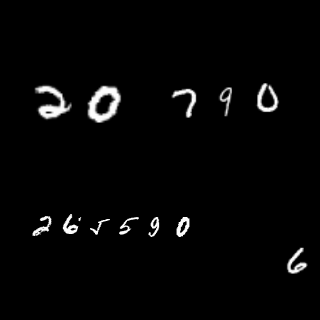 20 790
265590
6